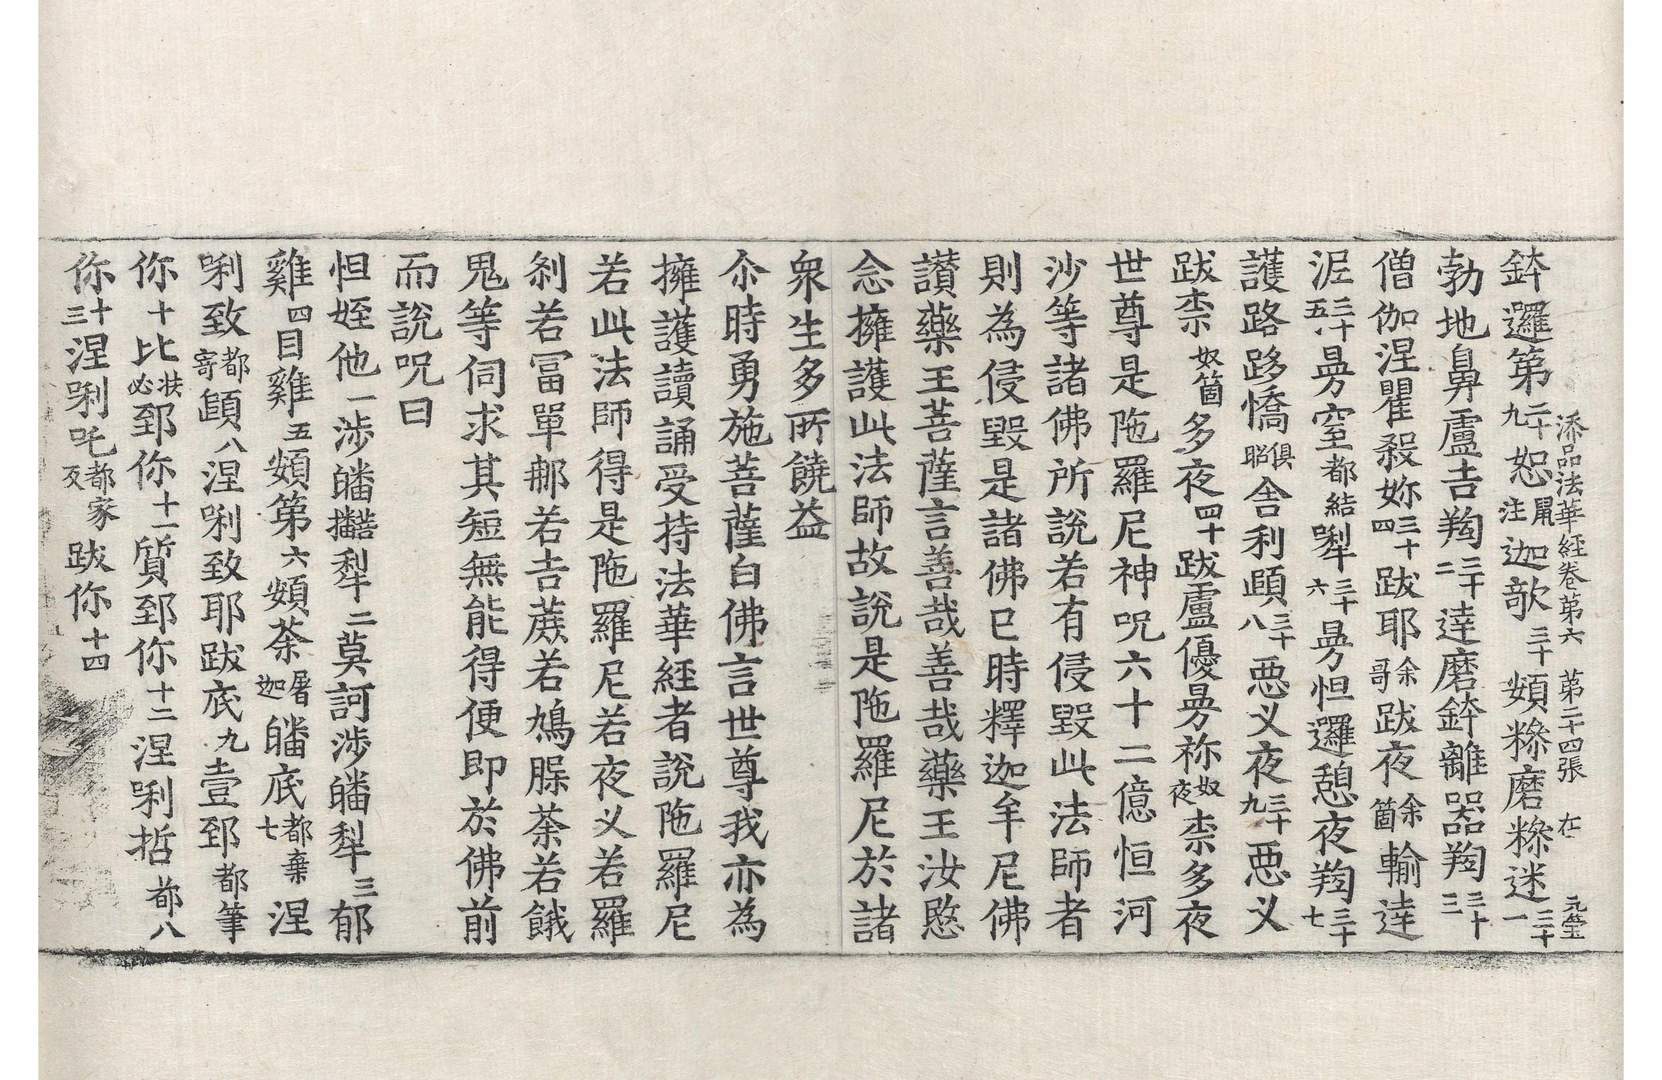 添品法華経卷第六 第二十四張 在 元瑩
鉢邏第二十九恕鼠注迦欹三十頞糝磨糝迷三十一
勃地鼻盧吉羯三十二達磨鉢離器羯三十三
僧伽涅瞿殺妳三十四跋耶余哥跋夜余箇輸達
泥三十五曼窒都結㗚三十六曼怛邏憩夜羯三十七
護路跢憍俱昭舍利頤三十八惡义夜三十九惡义
跋柰奴箇多夜四十跋盧優曼祢奴夜柰多夜
世尊是陁羅尼神呪六十二億恒河
沙等諸佛所說若有侵毀此法師者
則為侵毀是諸佛巳時釋迦牟尼佛
讃藥王菩薩言善哉善哉藥王汝愍
念擁護此法師故說是陁羅尼於諸
衆生多所饒益
尒時勇施菩薩白佛言世尊我亦為
擁護讀誦受持法華經者說陁羅尼
若此法師得是陁羅尼若夜义若羅
刹若冨單䣕若吉蔗若鳩腺荼若餓
鬼等伺求其短無能得便即於佛前
而說呪曰
怛姪他一涉皤菩播犁二莫訶涉皤犁三郁
雞四目雞五頞第六頞荼屠迦皤底都棄七涅
唎致都寄頤八涅唎致耶跋底九壹郅都筆
你十比扶必郅你十一質郅你十二涅唎哲都八
你十三涅唎吒都家反跋你十四